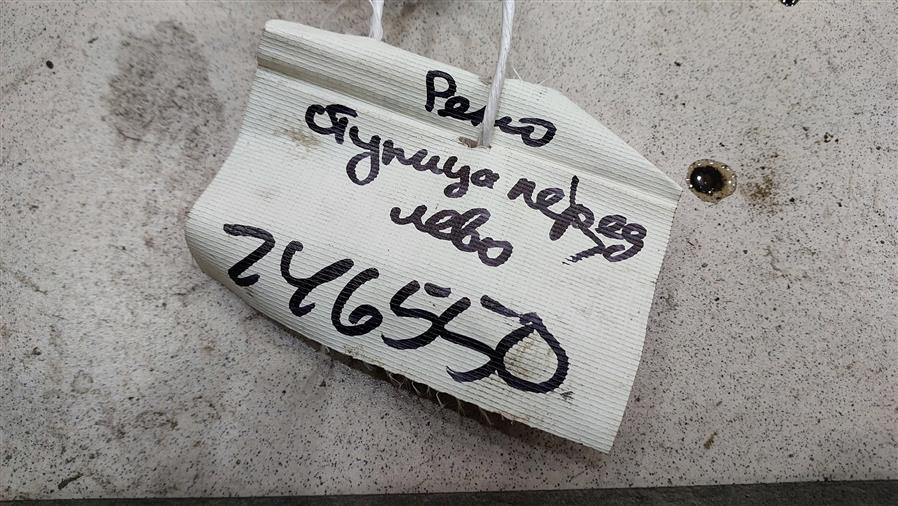 Рено
ступица перед
лево
246550